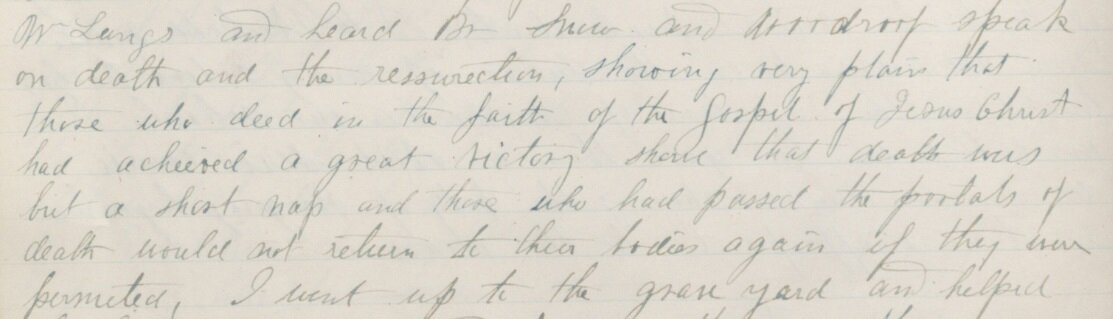 and heard Br Snow and Woodroof speak
on death and the ressurection, showing very plain that
those who deed in the faith of the Gospel of Jesus Christ
had achieved a great victory that death was
but a short nap and those who had passed the portals of
death would not return to their bodies again if they were
permited, I went up to the grave yard and helped